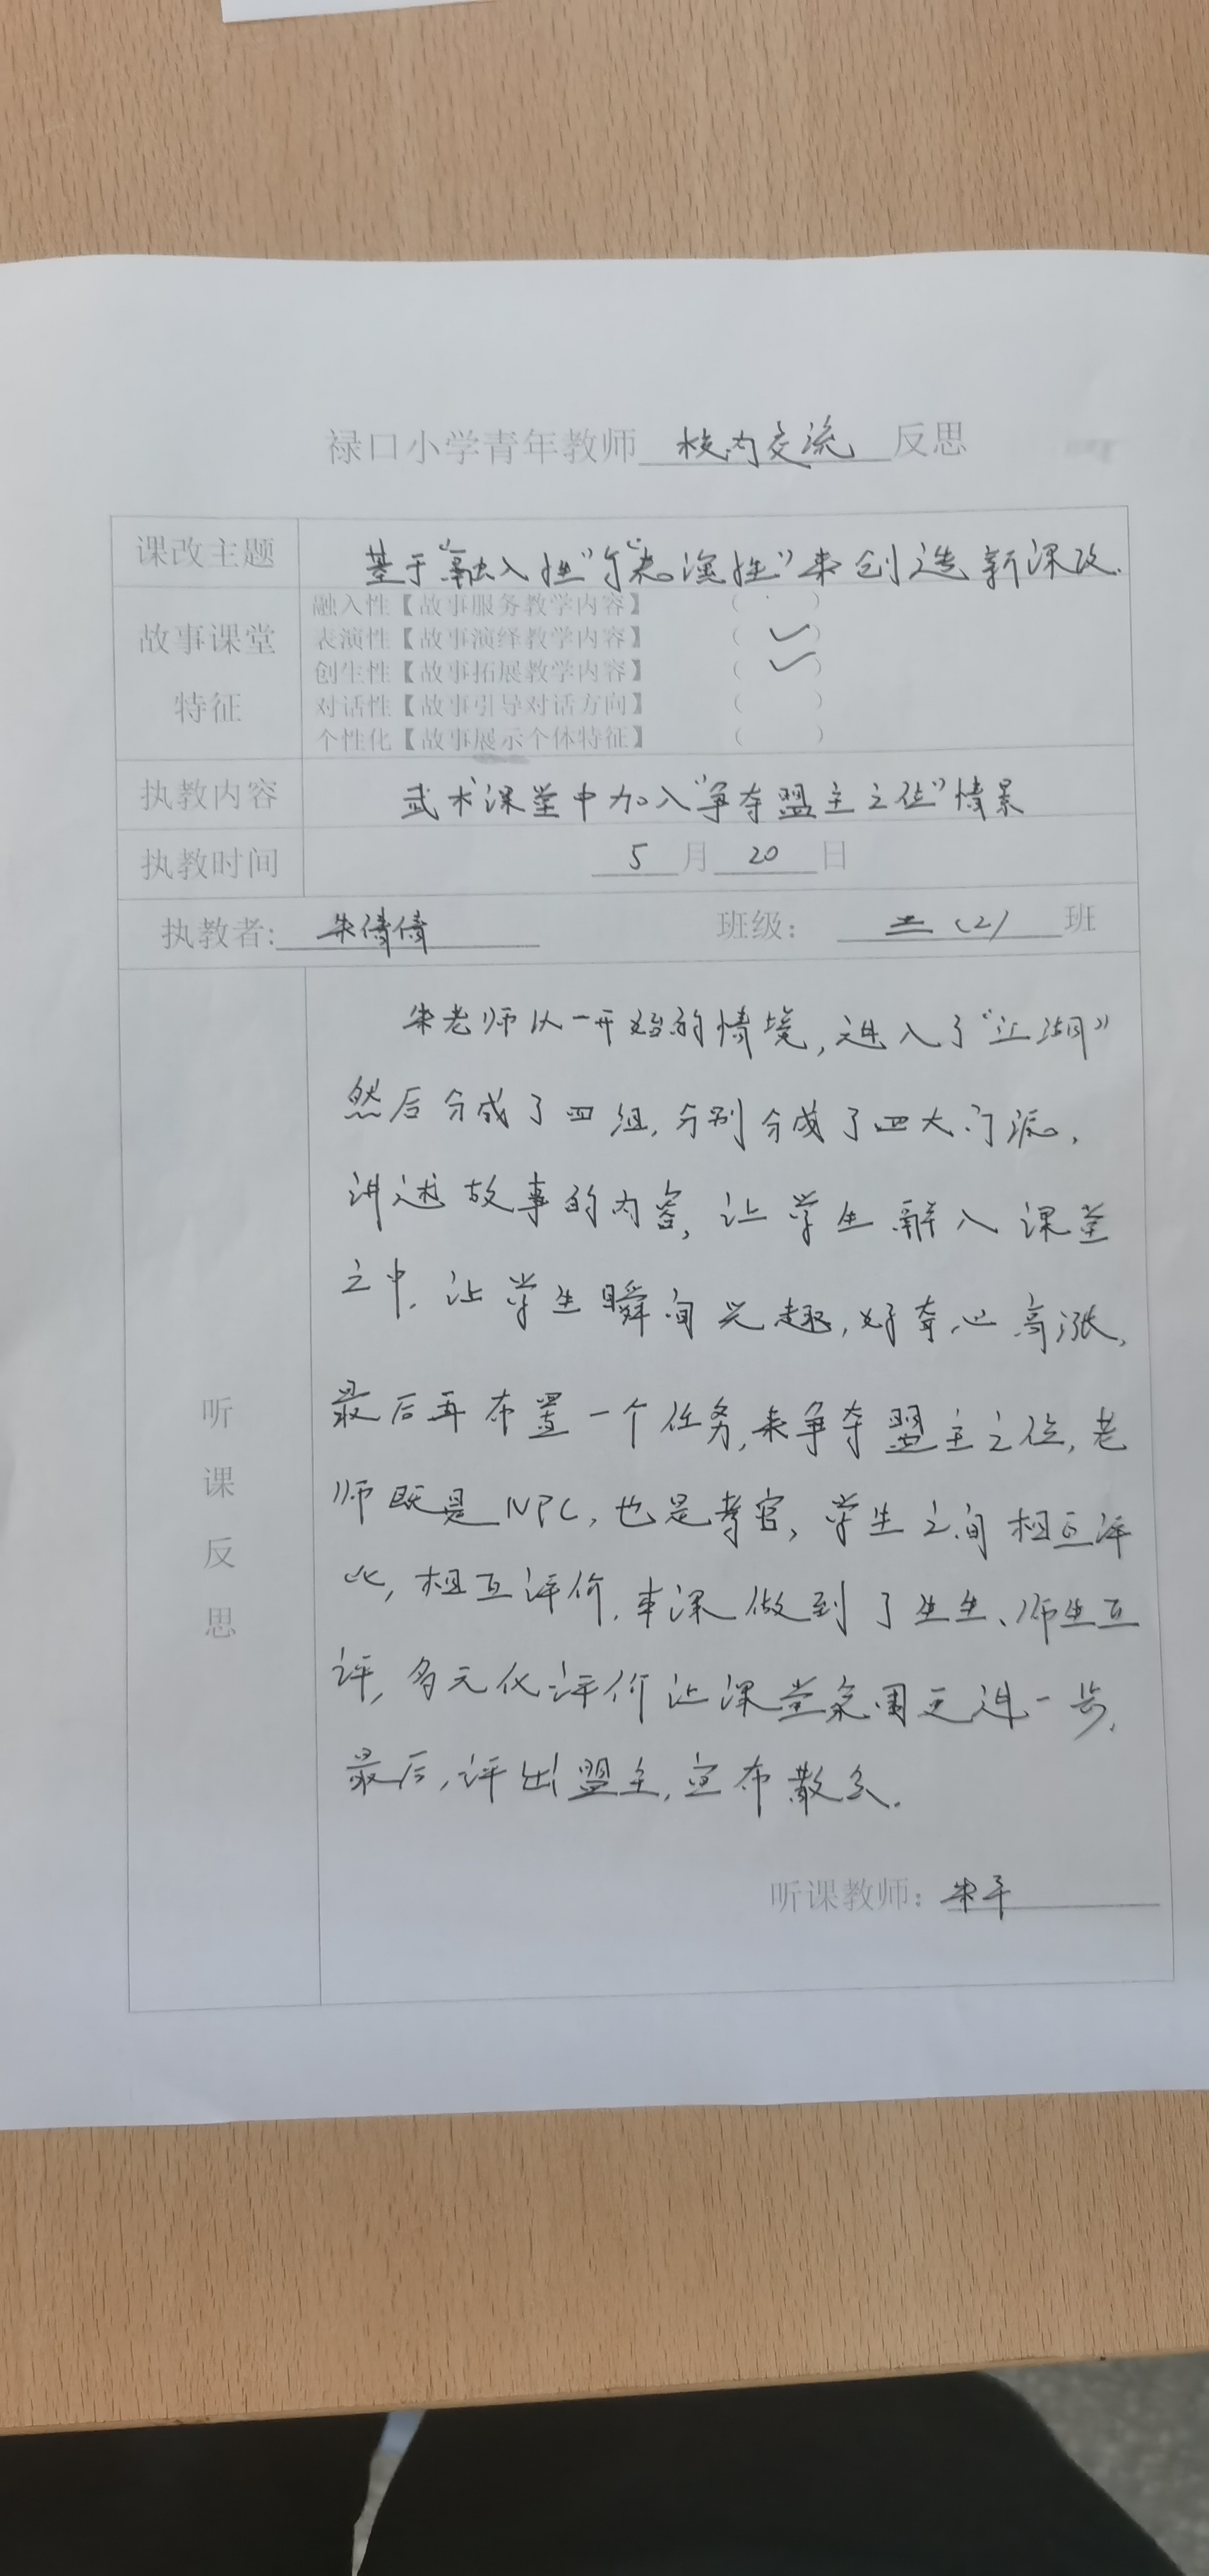 禄口小学青年教师 校内交流 反思
课改主题 基于“融入性”与“表演性”来创造新课改.
故事课堂特征
融入性【故事服务教学内容】 （ ）
表演性【故事演绎教学内容】 （✓）
创生性【故事拓展教学内容】 （✓）
对话性【故事引导对话方向】 （ ）
个性化【故事展示个体特征】 （ ）
执教内容 武术课堂中加入“争夺盟主之位”情景
执教时间 5 月 20 日
执教者: 朱倩倩 班级: 三（2） 班
听课反思
朱老师从一开始的情境,进入了“江湖”
然后分成了四组,分别分成了四大门派,
讲述故事的内容,让学生融入课堂
之中,让学生瞬间兴趣,好奇心高涨,
最后再布置一个任务,来争夺盟主之位,老
师既是NPC,也是考官,学生之间相互评
比,相互评价,本课做到了生生、师生互
评,多元化评价让课堂氛围更进一步,
最后,评出盟主,宣布散会.
听课教师: 朱平